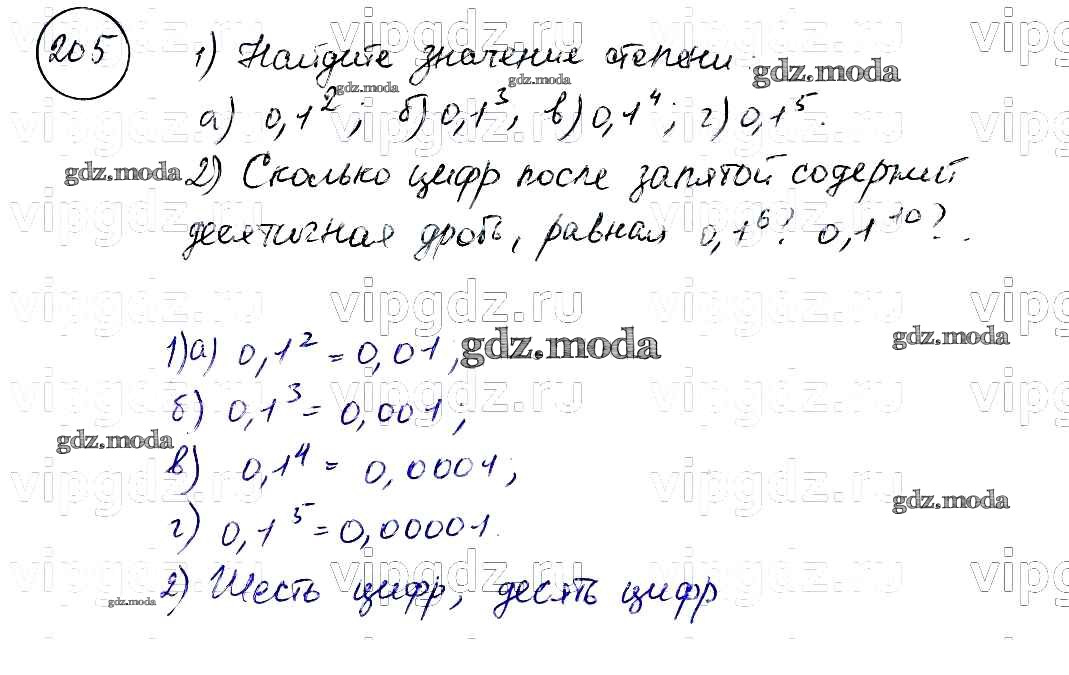 205
1) Найдите значение степени
а) 0,1²; б) 0,1³; в) 0,1⁴; г) 0,1⁵.
2) Сколько цифр после запятой содержит
десятичная дробь, равная 0,1⁶? 0,1¹⁰?.
1) а) 0,1² = 0,01;
б) 0,1³ = 0,001;
в) 0,1⁴ = 0,0001;
г) 0,1⁵ = 0,00001.
2) Шесть цифр, десять цифр
vipgdz.ru
gdz.moda